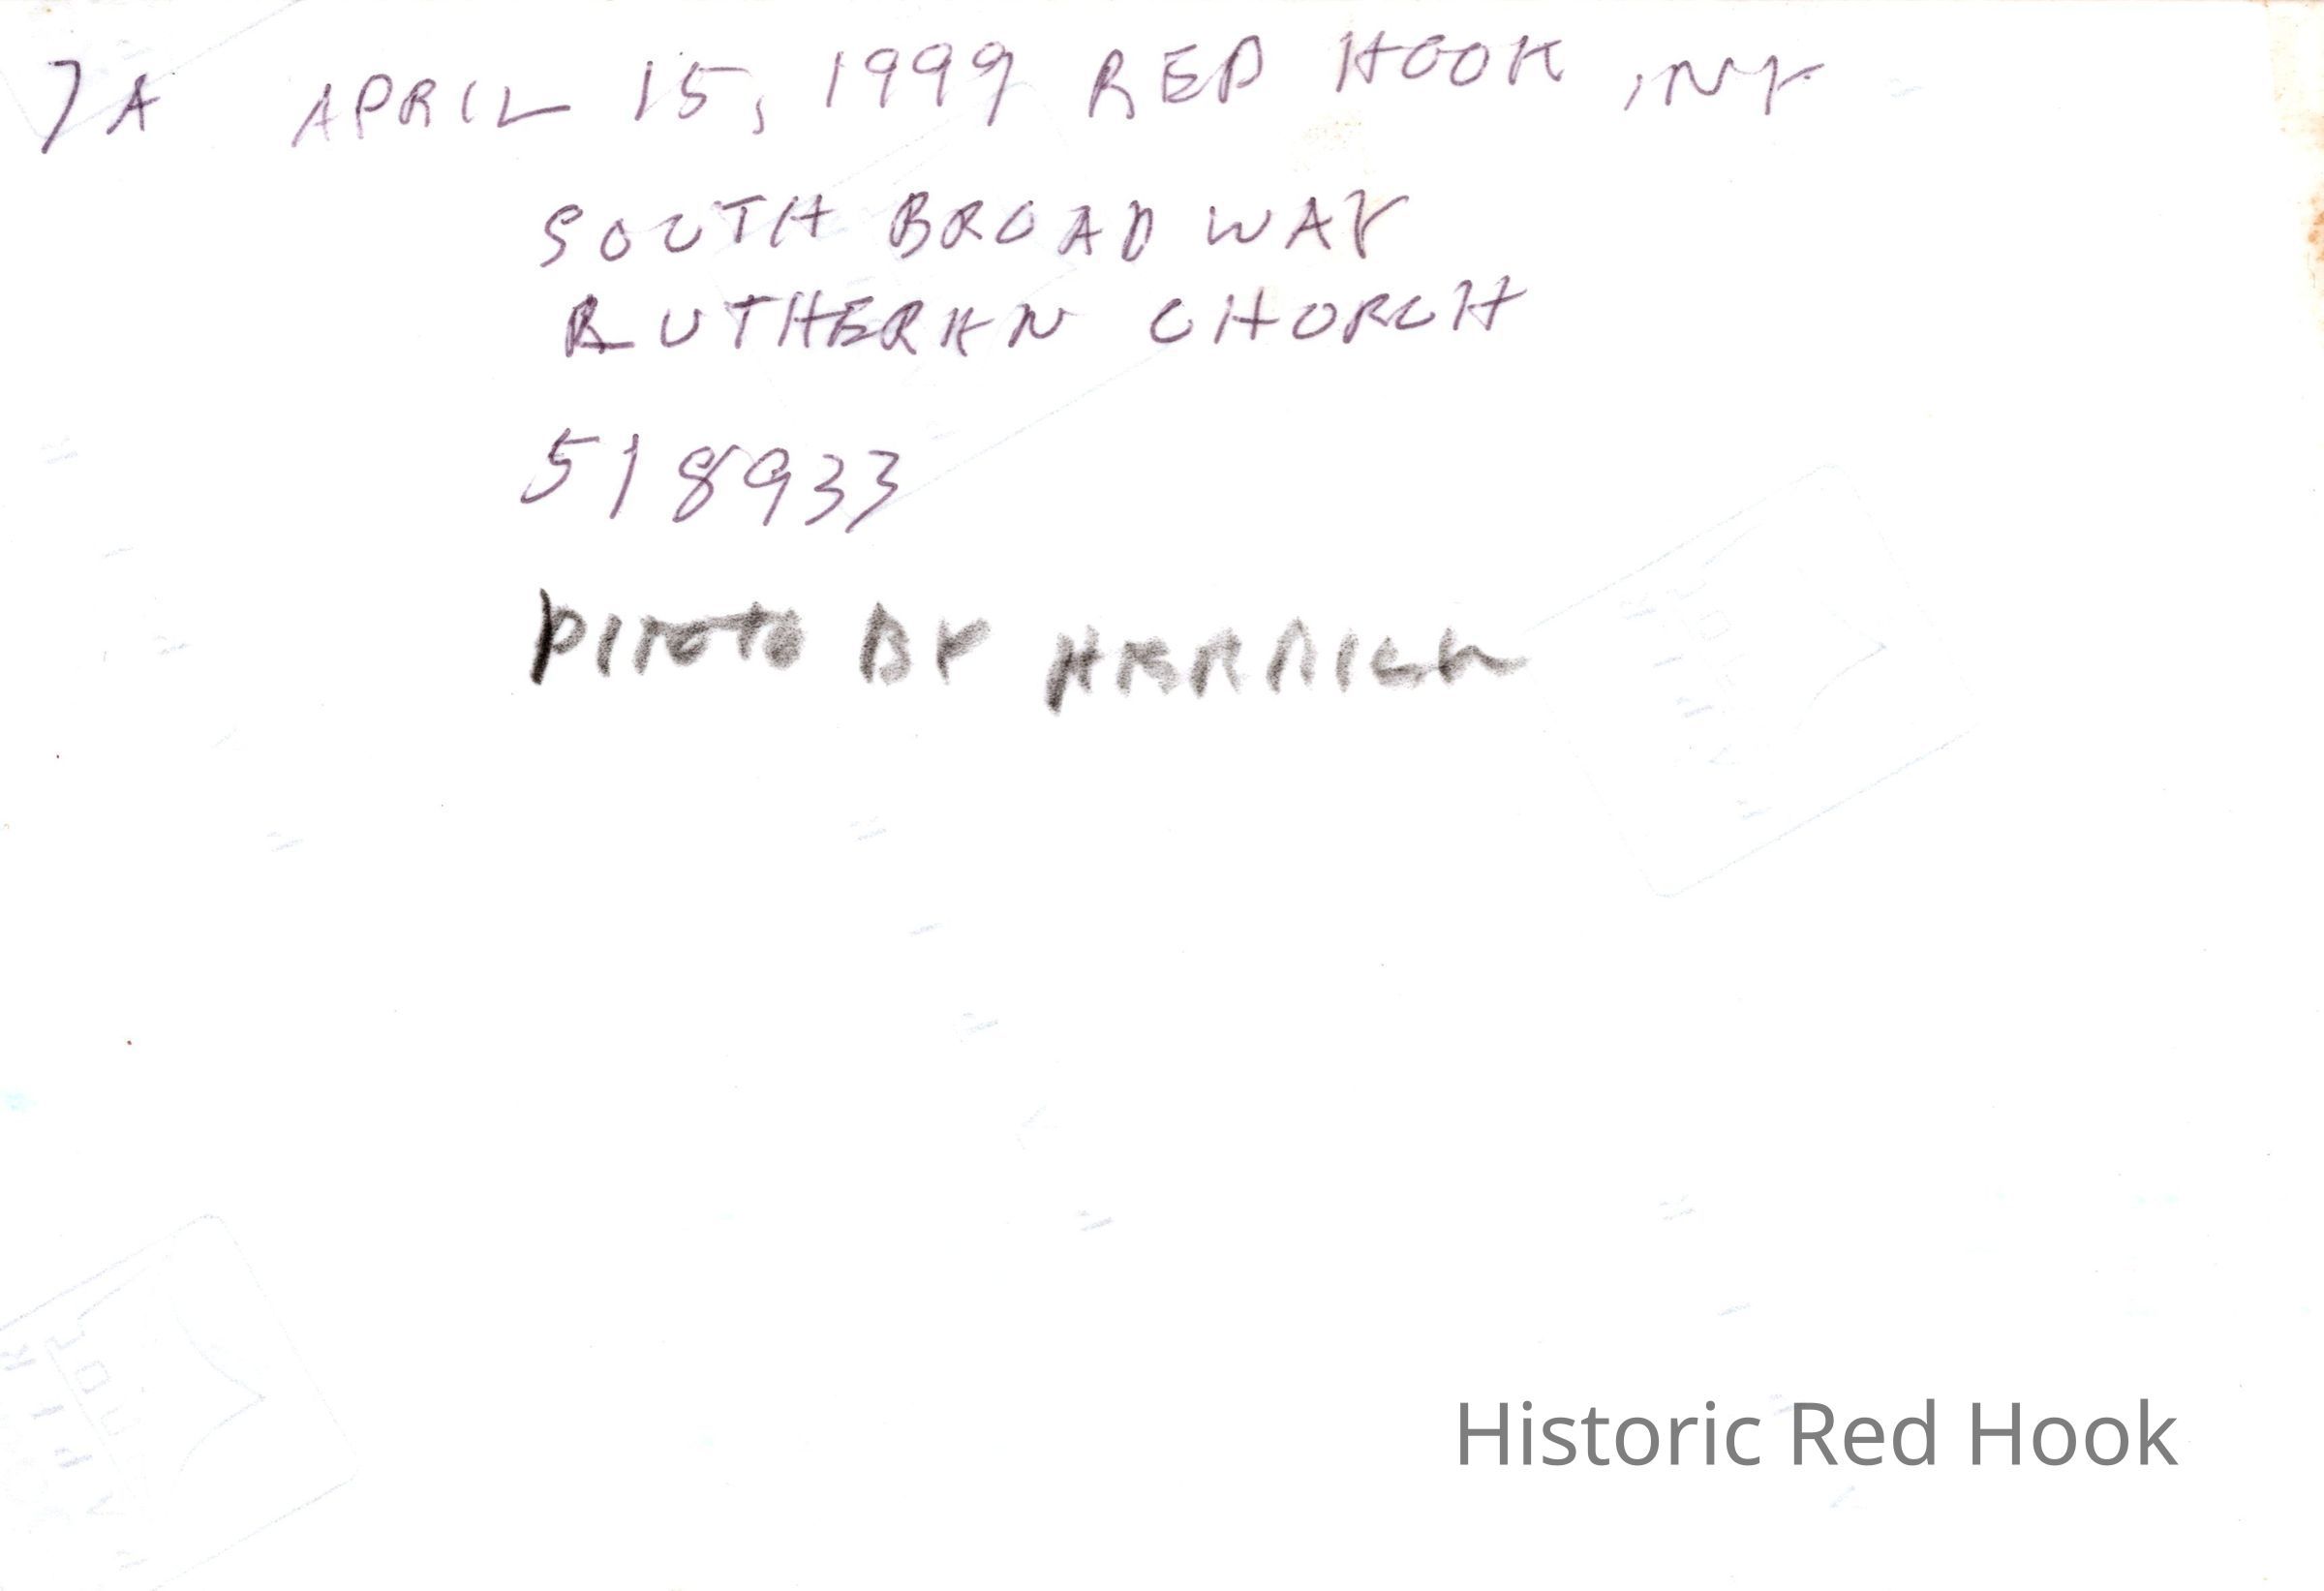 7A APRIL 15, 1999 RED HOOK, NY
SOUTH BROADWAY
LUTHERAN CHURCH
518933
PHOTO BY HERRICK
Historic Red Hook